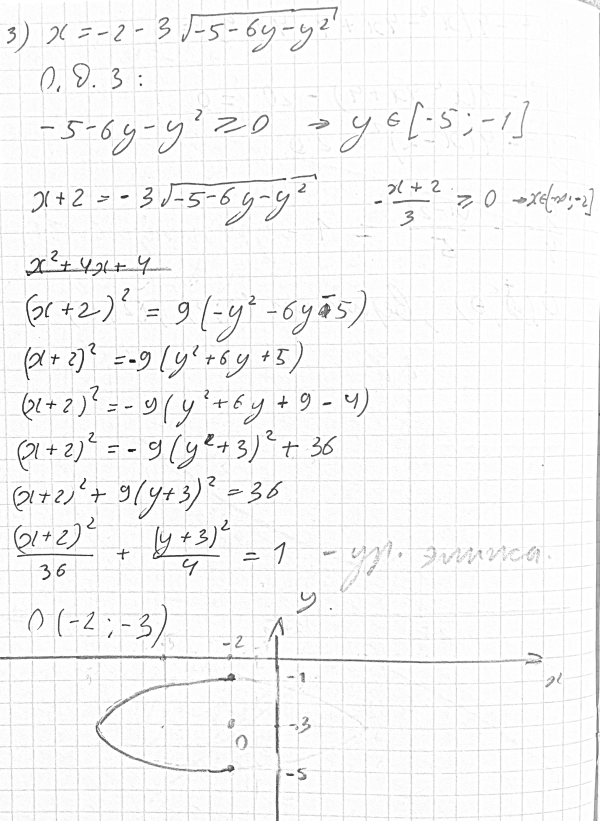 3) x = -2 - 3√(-5-6y-y²)
О.Д.З:
-5-6y-y² ≥ 0 → y ∈ [-5; -1]
x+2 = -3√(-5-6y-y²) -(x+2)/3 ≥ 0 → x∈[-∞; -2]
x²+4x+4
(x+2)² = 9(-y²-6y-5)
(x+2)² = -9(y²+6y+5)
(x+2)² = -9(y²+6y+9-4)
(x+2)² = -9(y+3)²+36
(x+2)² + 9(y+3)² = 36
(x+2)²/36 + (y+3)²/4 = 1 - ур. эллипса.
О(-2; -3)
y
-2
x
-1
-3
О
-5